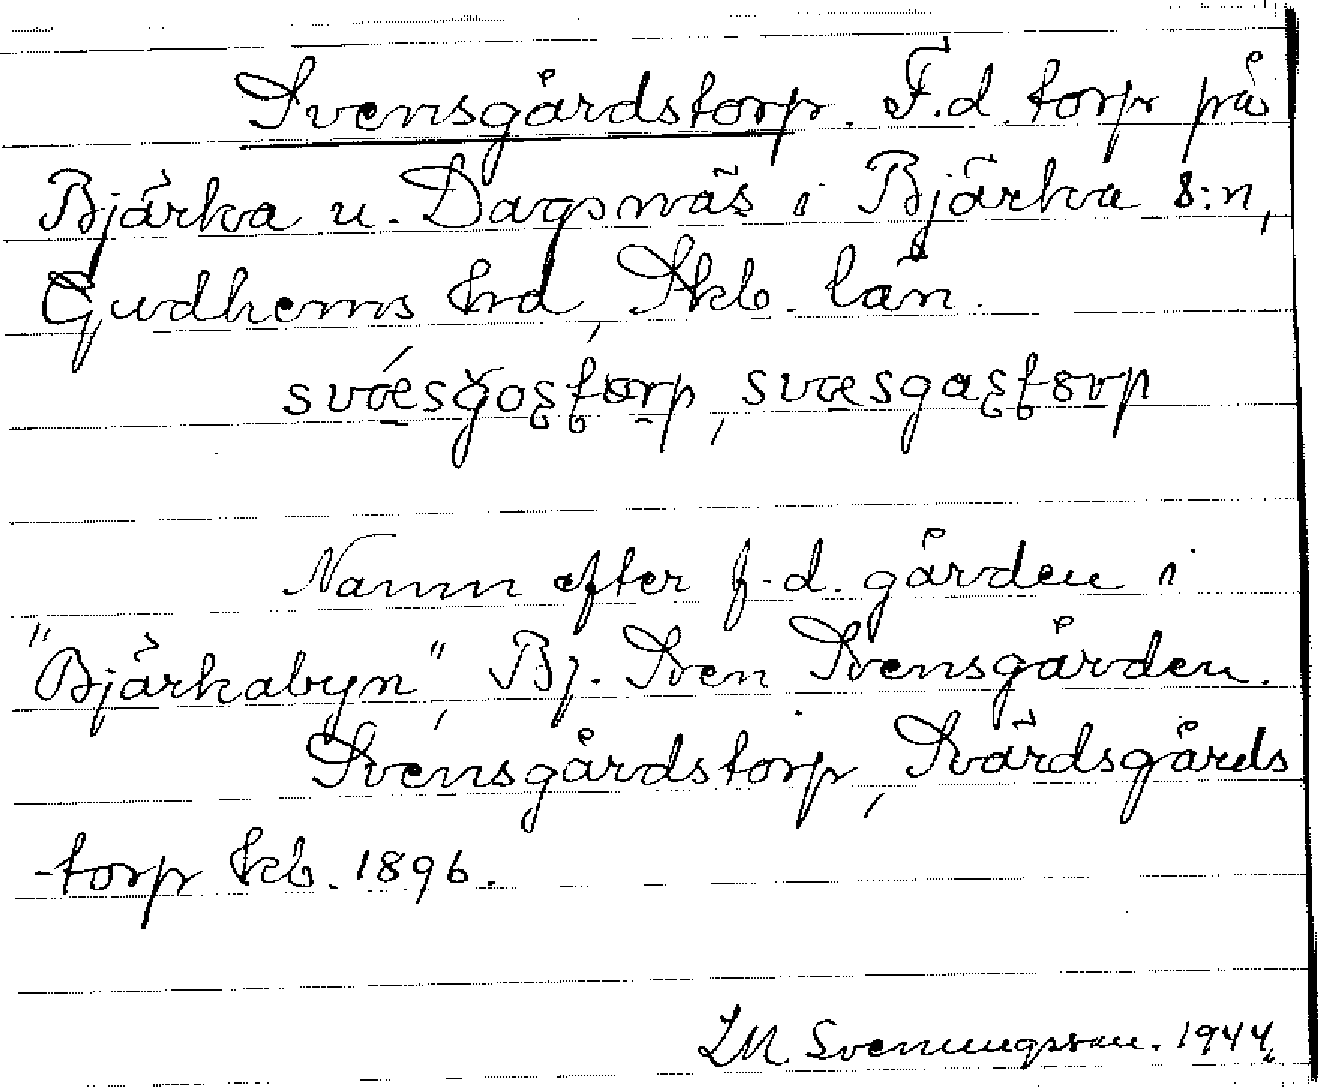 Svensgårdstorp. F.d. torp på
Bjärka u. Dagsnäs i Bjärka s:n,
Gudhems hd, Skb. län.
svǽsgosstorp, svæsgasstorp
Namn efter f.d. gården i
"Bjärkabyn", Bj. Sven Svensgården.
Svensgårdstorp, Svärdsgårds
-torp kb. 1896.
LM. Svenungsson. 1944.